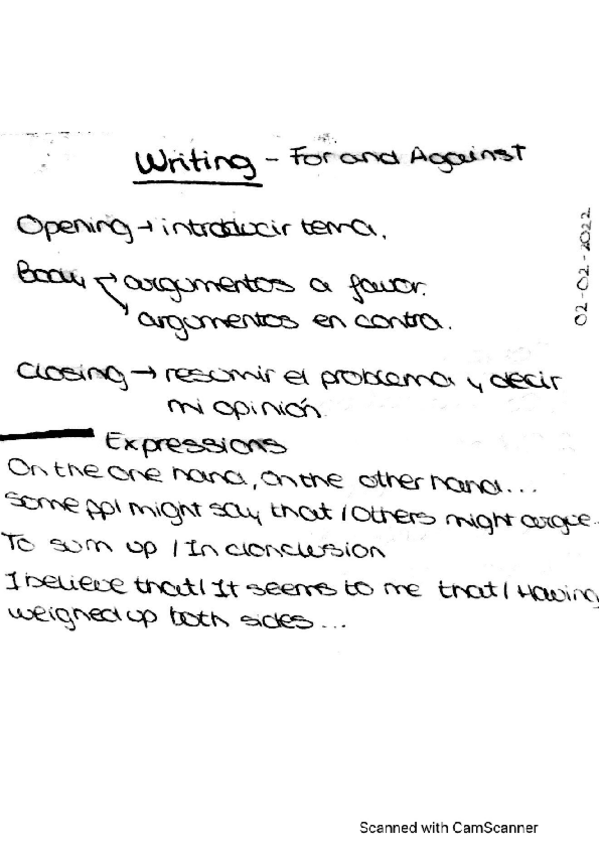 Writing - For and Against
02-02-2022
Opening → introducir tema.
Body → argumentos a favor.
→ argumentos en contra.
Closing → resumir el problema y decir
mi opinión
Expressions
On the one hand, on the other hand...
Some ppl might say that / Others might argue.
To sum up / In clonclusion
I believe that / It seems to me that / Having
weighed up both sides...
Scanned with CamScanner